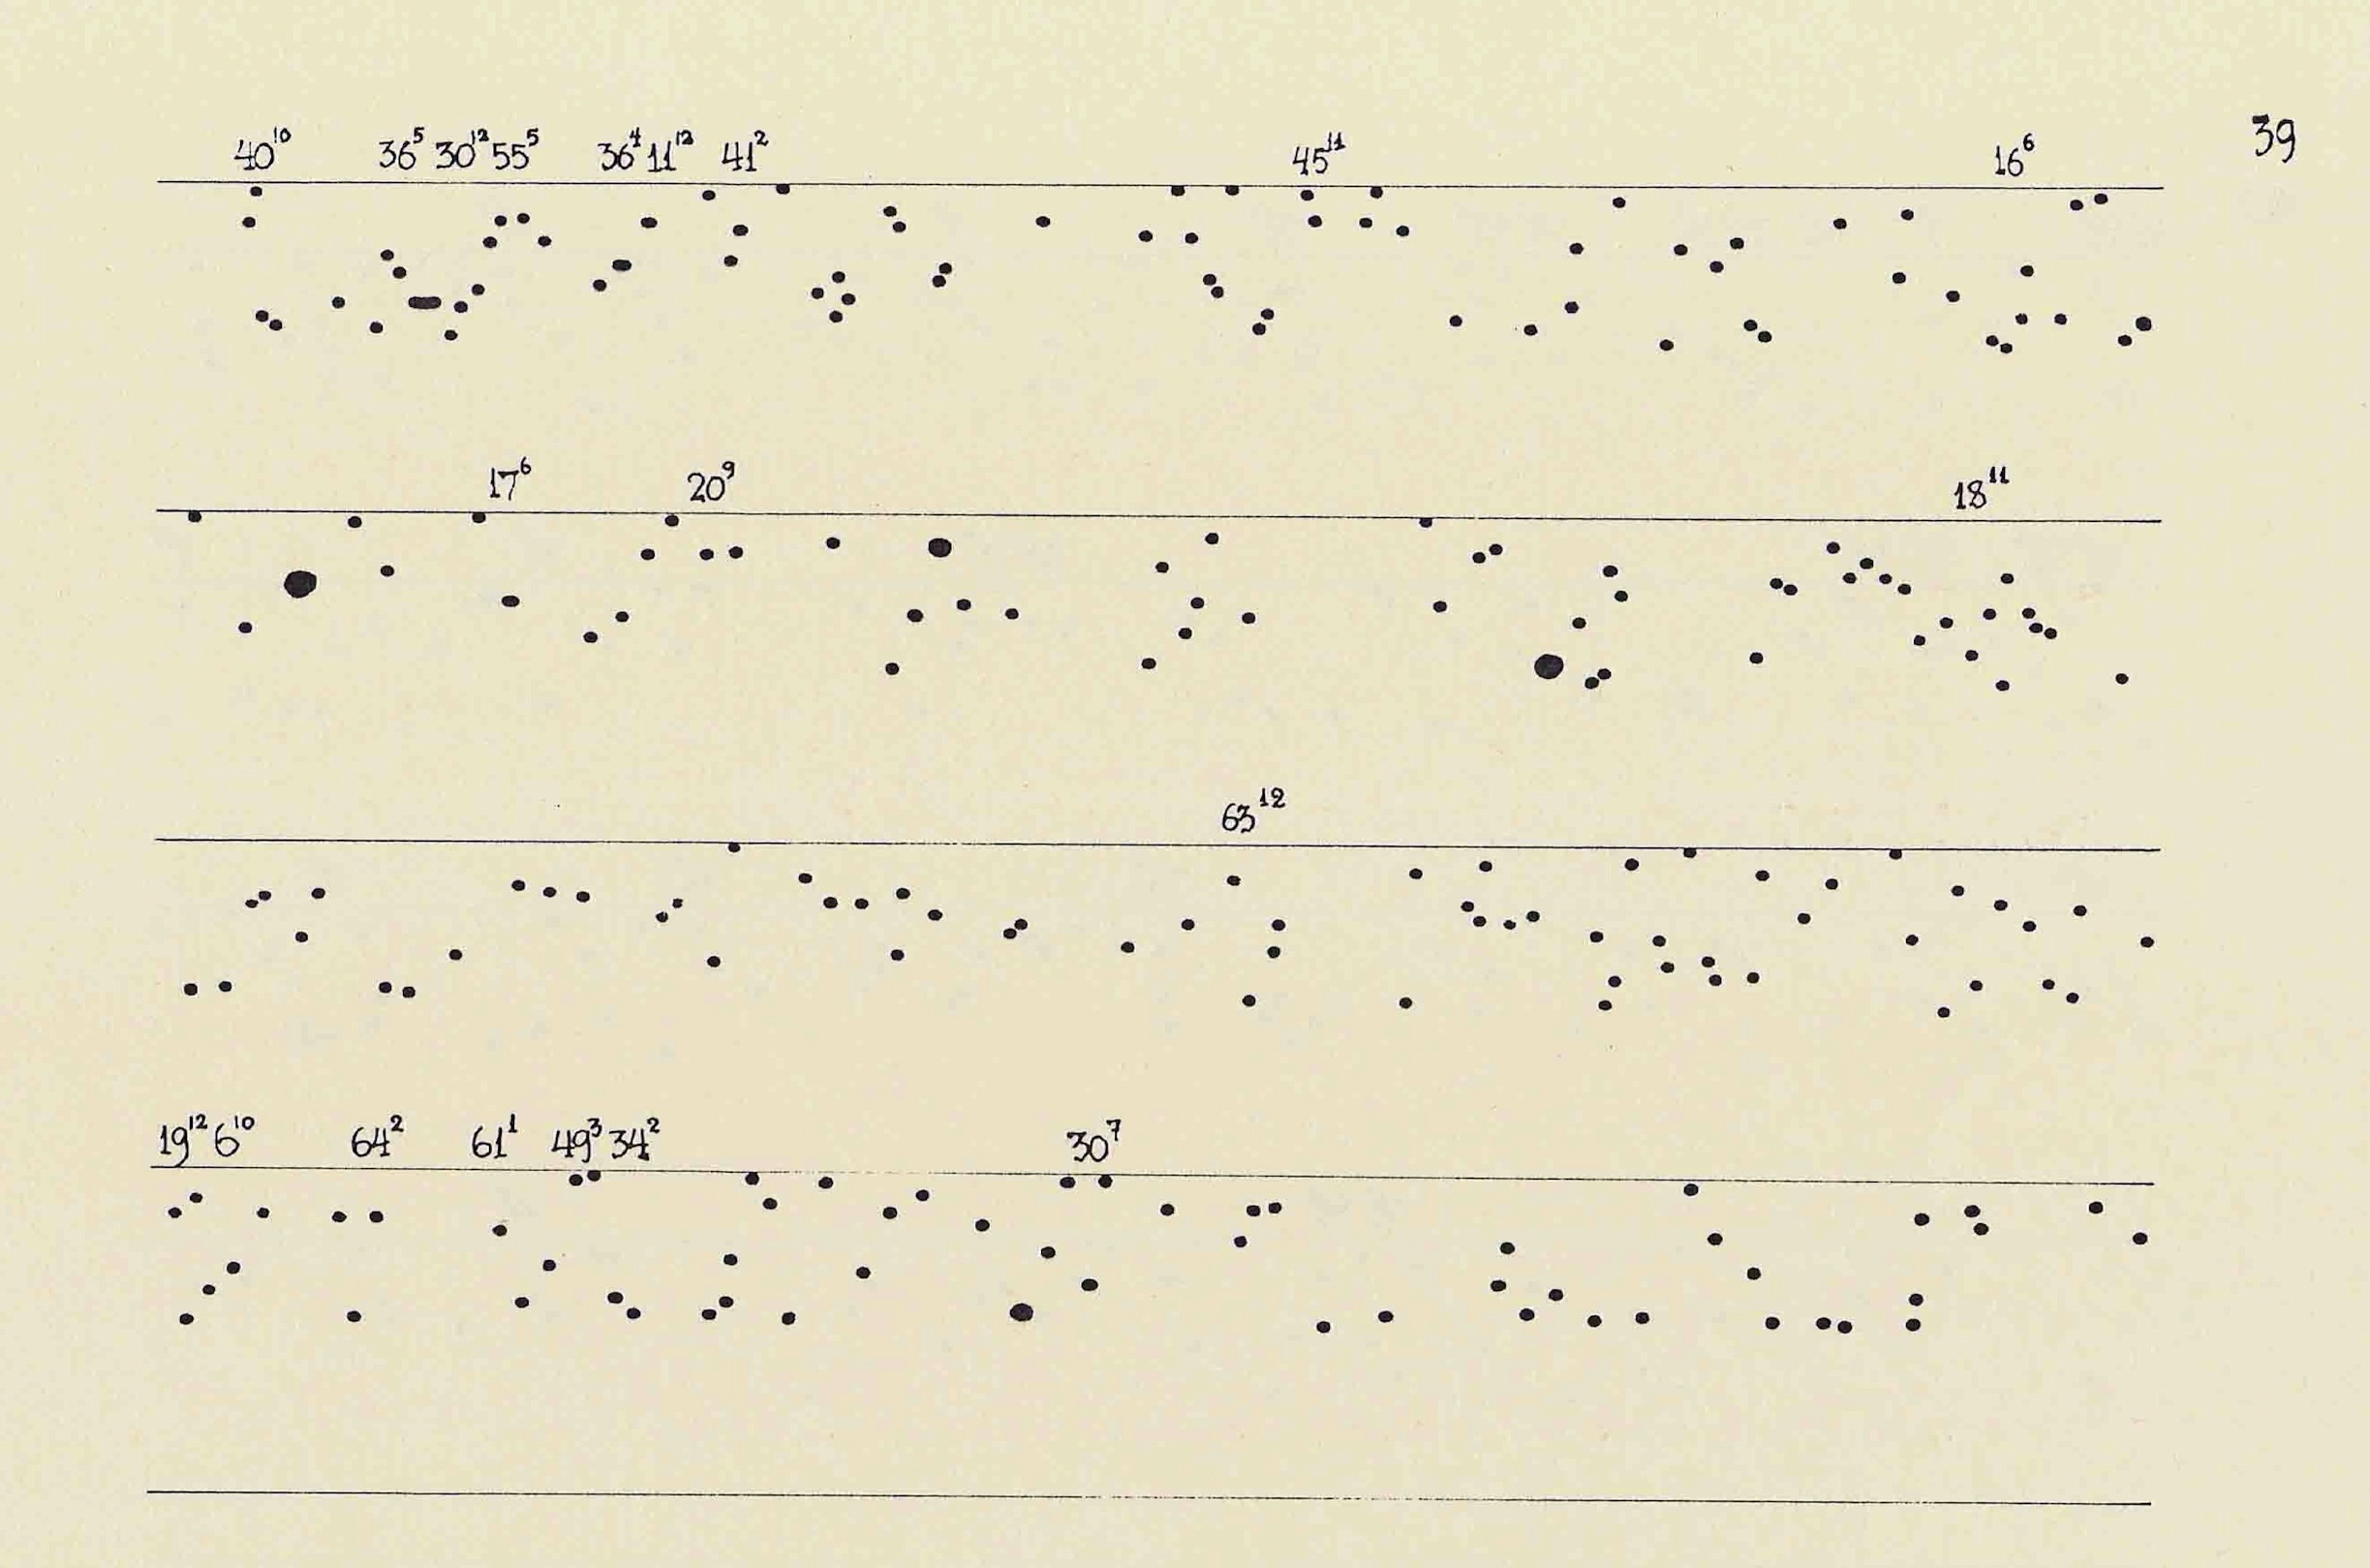 39
40¹⁰ 36⁵ 30¹² 55⁵ 36⁴ 11¹² 41² 45¹¹ 16⁶
17⁶ 20⁹ 18¹¹
63¹²
19¹² 6¹⁰ 64² 61¹ 49³ 34² 30⁷